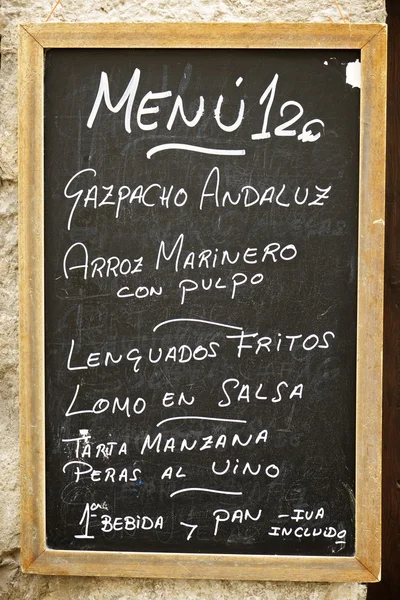 MENÚ 12€
GAZPACHO ANDALUZ
ARROZ MARINERO
CON PULPO
LENGUADOS FRITOS
LOMO EN SALSA
TARTA MANZANA
PERAS AL VINO
BEBIDA Y PAN -IVA
INCLUIDO